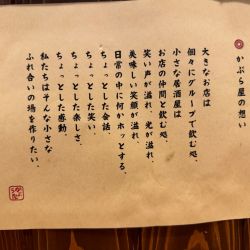 かぶら屋の想い
大きなお店は
個々にグループで飲む処、
小さな居酒屋は
お店の仲間と飲む処、
笑い声が溢れ、光が溢れ、
美味しい笑顔が溢れ、
日常の中に何かホッとする、
ちょっとした会話、
ちょっとした笑い、
ちょっとした楽しさ、
ちょっとした感動、
私たちはそんな小さな
ふれ合いの場を作りたい。